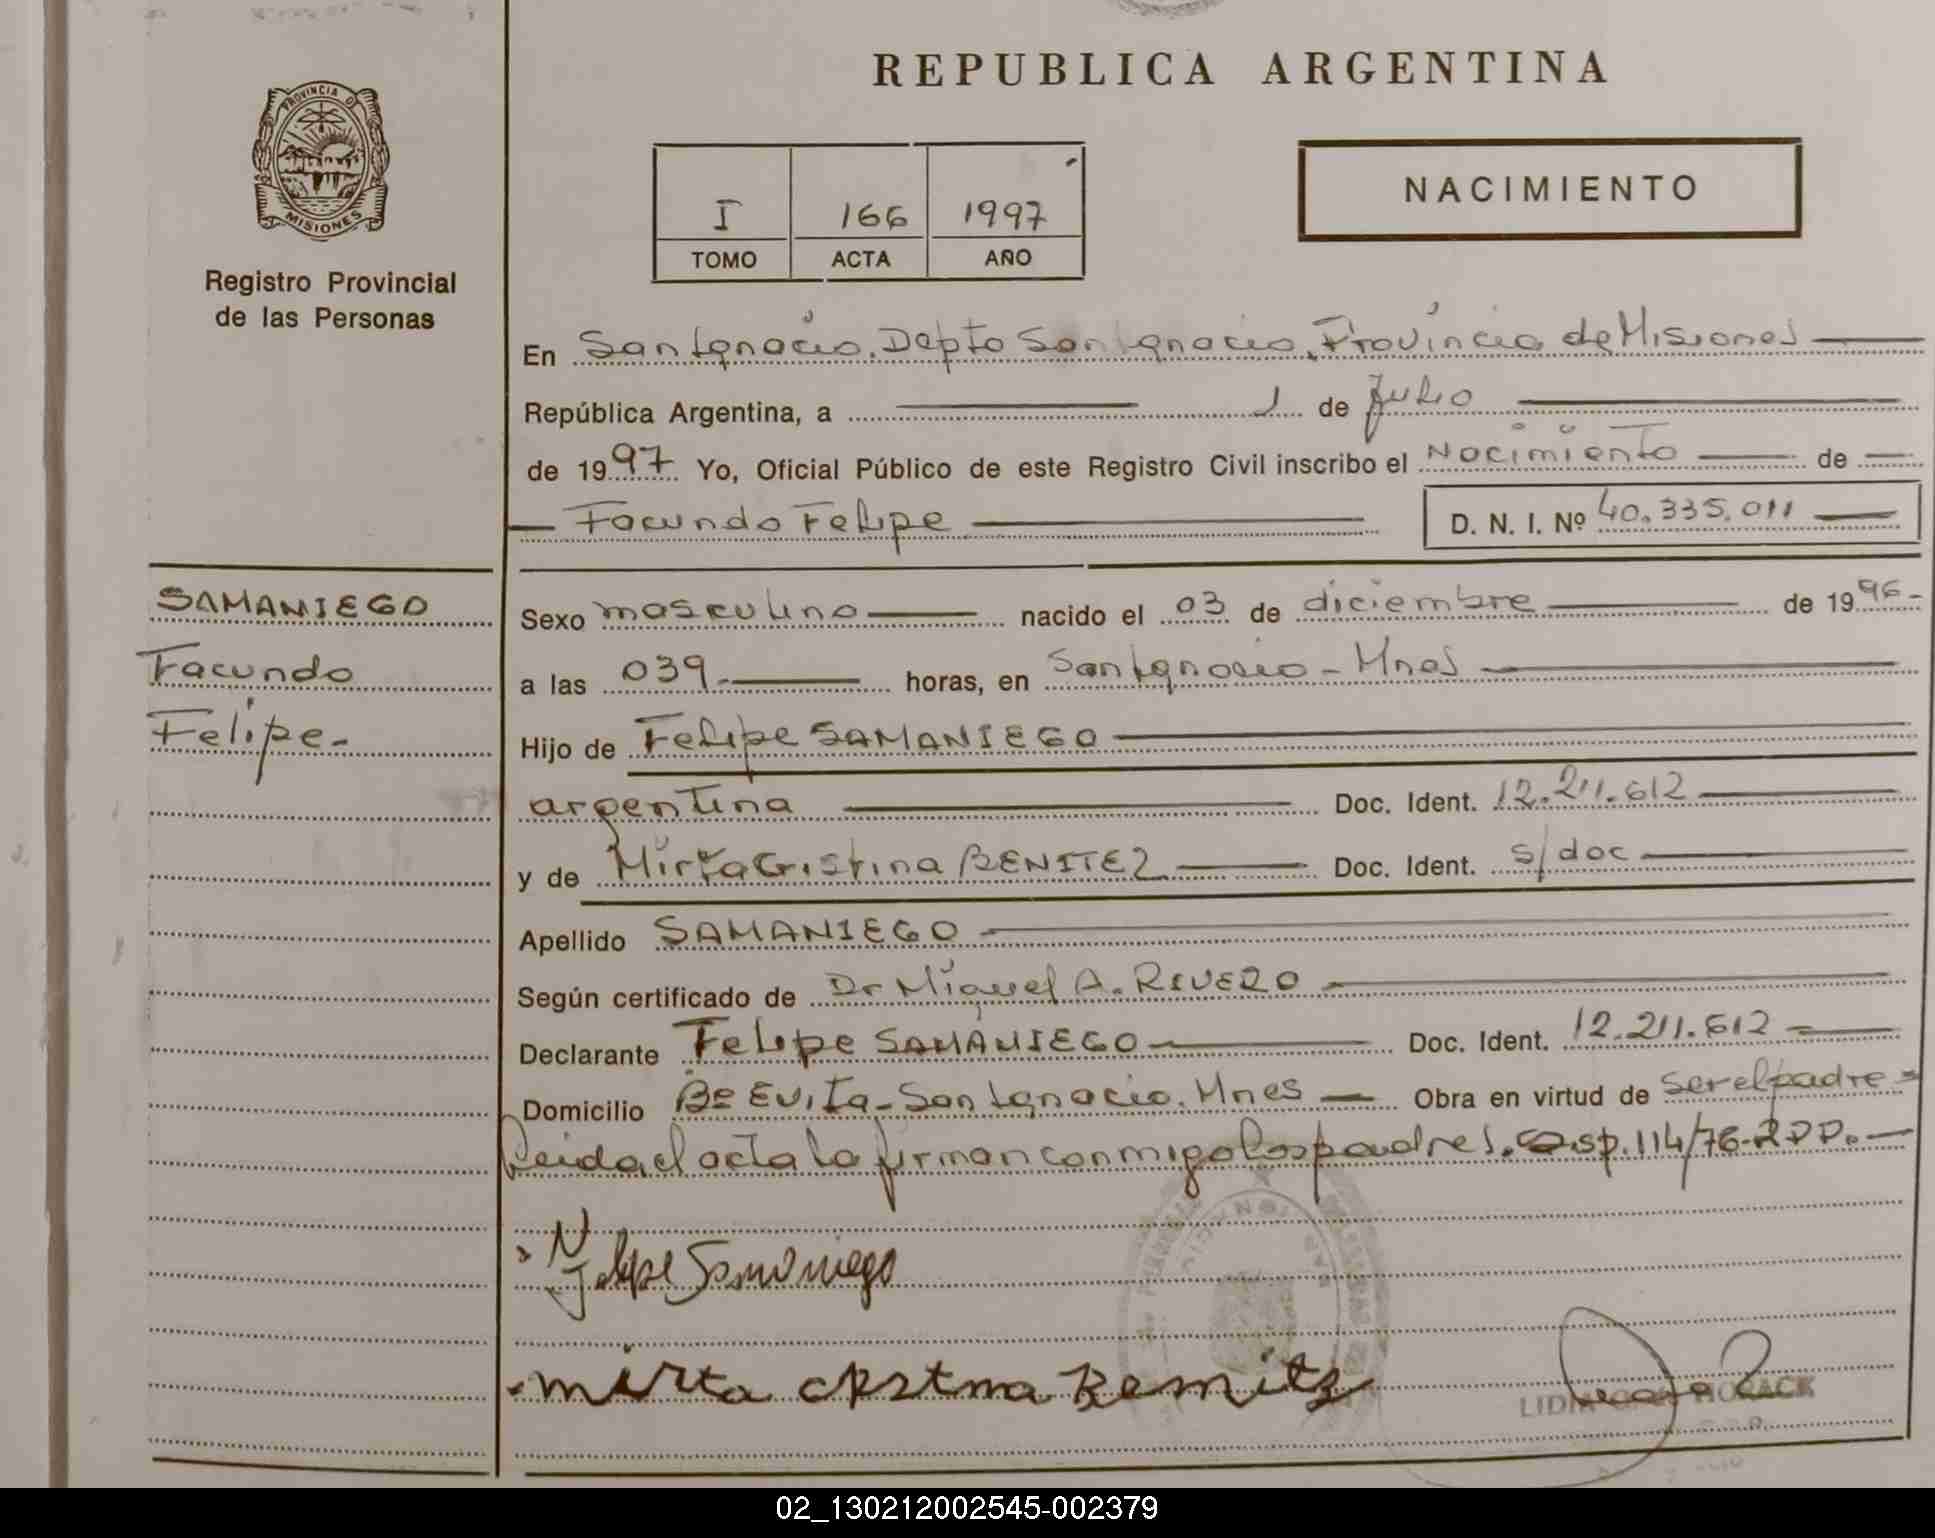 REPUBLICA ARGENTINA
PROVINCIA DE
MISIONES
Registro Provincial
de las Personas
I 166 1997
TOMO ACTA AÑO
NACIMIENTO
En San Ignacio, Depto San Ignacio, Provincia de Misiones
República Argentina, a 1 de Julio
de 1997 Yo, Oficial Público de este Registro Civil inscribo el Nacimiento de
Facundo Felipe D. N. I. Nº 40.335.011
SAMANIEGO
Facundo
Felipe.-
Sexo masculino nacido el 03 de diciembre de 1996-
a las 039 horas, en San Ignacio - Mnes
Hijo de Felipe SAMANIEGO
argentina Doc. Ident. 12.211.612
y de Mirta Cristina BENITEZ Doc. Ident. s/doc
Apellido SAMANIEGO
Según certificado de Dr Miguel A. RIVERO
Declarante Felipe SAMANIEGO Doc. Ident. 12.211.612
Domicilio Bº Evita - San Ignacio. Mnes Obra en virtud de ser el padre
Leida el acta la firman conmigo los padres. Disp. 114/76-RPP.
Felipe Samaniego
mirta crstina Benitz
LIDIA HORACK
02_130212002545-002379